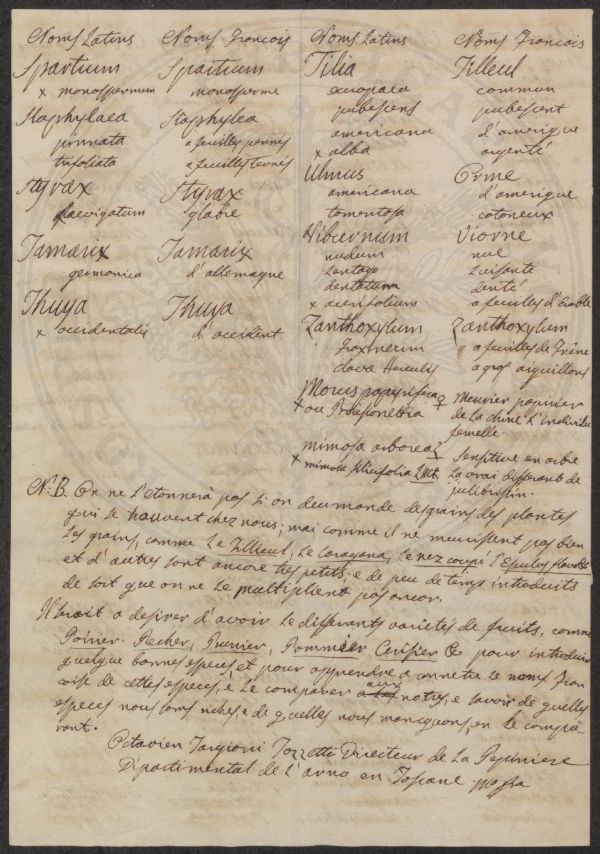 Noms Latins Noms Francois
Spartium Spartium
x monospermum monosperme
Staphylaea Staphylea
pinnata a feuilles pennés
trifoliata a feuilles ternés
Styrax Styrax
laevigatum glabre
Tamarix Tamarix
germanica d'allemagne
Thuya Thuya
x occidentalis d'occident
Noms Latins Noms Francois
Tilia Tilleul
europaea commun
pubescens pubescent
americana d'amerique
x alba argenté
Ulmus Orme
americana d'amerique
tomentosa cotoneux
Viburnum Viorne
nudum nue
Lantago Luisante
dentatum denté
x acerifolium a feuilles d'Erable
Zanthoxylum Zanthoxylum
fraxineum a feuilles de Frêne
clava Herculis a gros aiguillons
Morus papyrifera Meurier papirier
x ou Brusponetia ♀ de la chine L'individu
femelle
mimosa arborea? Sensitive en arbre
x mimosa filicifolia LMK La vrai differant de
julibrissin.
N.B. On ne s'etonnerà pas si on deumande des grains des plantes
qui se trouvent chez nous; mai comme il ne meurissent pas bien
les grains, comme Le Tillieul, Le Caragana, Le nez coupé
et d'autres sont ancore tres petits, e de peu de temps introduits
de sort que on ne le multiplient pas ancor.
Il serait a desirer d'avoir le differants varietés de fruits, comme
Poirier, Pecher, Prunier, Pommier Cerisier &c pour introduir
quelque bonnes especes, et pour apprendre a conetre le noms Fran
coise de cettes especes, e le comparer aux notres, e savoir de quelles
especes nous soms riches, e de quelles nous manquons, en le compa
rant.
Octavien Targioni Tozzetti Directeur de La Pepiniere
Dipartimental de L'arno en Toscane